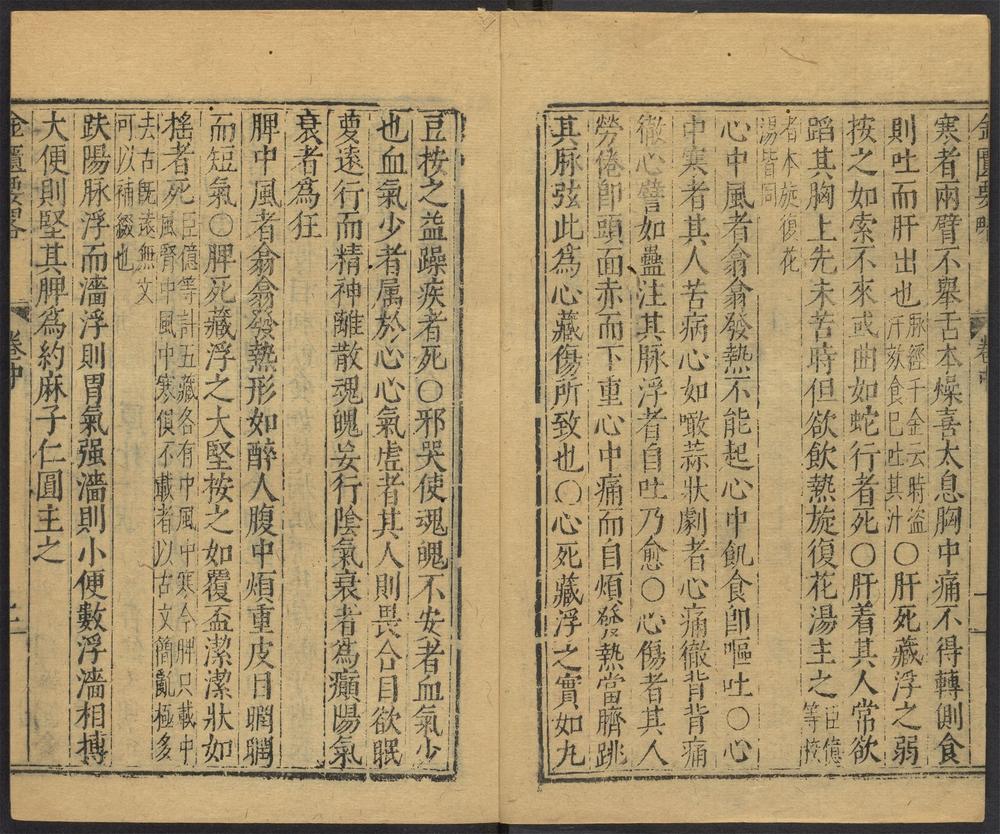 金匱要略 卷中 十一
寒者兩臂不舉舌本燥喜太息胸中痛不得轉側食
則吐而肝出也脉經千金云時盜汗欬食已吐其汁〇肝死藏浮之弱
按之如索不來或曲如蛇行者死〇肝着其人常欲
蹈其胸上先未苦時但欲飲熱旋復花湯主之臣億等挍
者本旋復花湯皆同
心中風者翕翕發熱不能起心中飢食卽嘔吐〇心
中寒者其人苦病心如噉蒜狀劇者心痛徹背背痛
徹心譬如蠱注其脉浮者自吐乃愈〇心傷者其人
勞倦卽頭面赤而下重心中痛而自煩發熱當臍跳
其脉弦此爲心藏傷所致也〇心死藏浮之實如丸
豆桉之益躁疾者死〇邪哭使魂魄不安者血氣少
也血氣少者属於心心氣虛者其人則畏合目欲眠
夢遠行而精神離散魂魄妄行陰氣衰者爲癲陽氣
衰者爲狂
脾中風者翕翕發熱形如醉人腹中煩重皮目瞤瞤
而短氣〇脾死藏浮之大堅桉之如覆盃潔潔狀如
揺者死臣億等詳五藏各有中風中寒今脾只載中風腎中風中寒俱不載者以古文簡亂極多
去古旣遠無文可以補綴也
趺陽脉浮而濇浮則胃氣强濇則小便數浮濇相摶
大便則堅其脾爲約麻子仁圓主之
金匱要畧 卷中